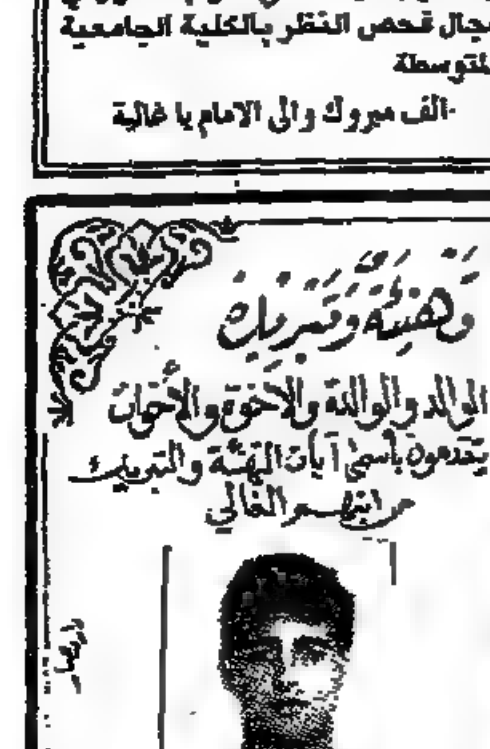 مجال فحص النظر بالكلية الجامعية
المتوسطة
-الف مبروك والى الامام يا غالية
تهنئة وتبريك
الوالد والوالدة والاخوة والأخوات
يتقدمون بأسمى آيات التهنئة والتبريك
من ابنهم الغالي